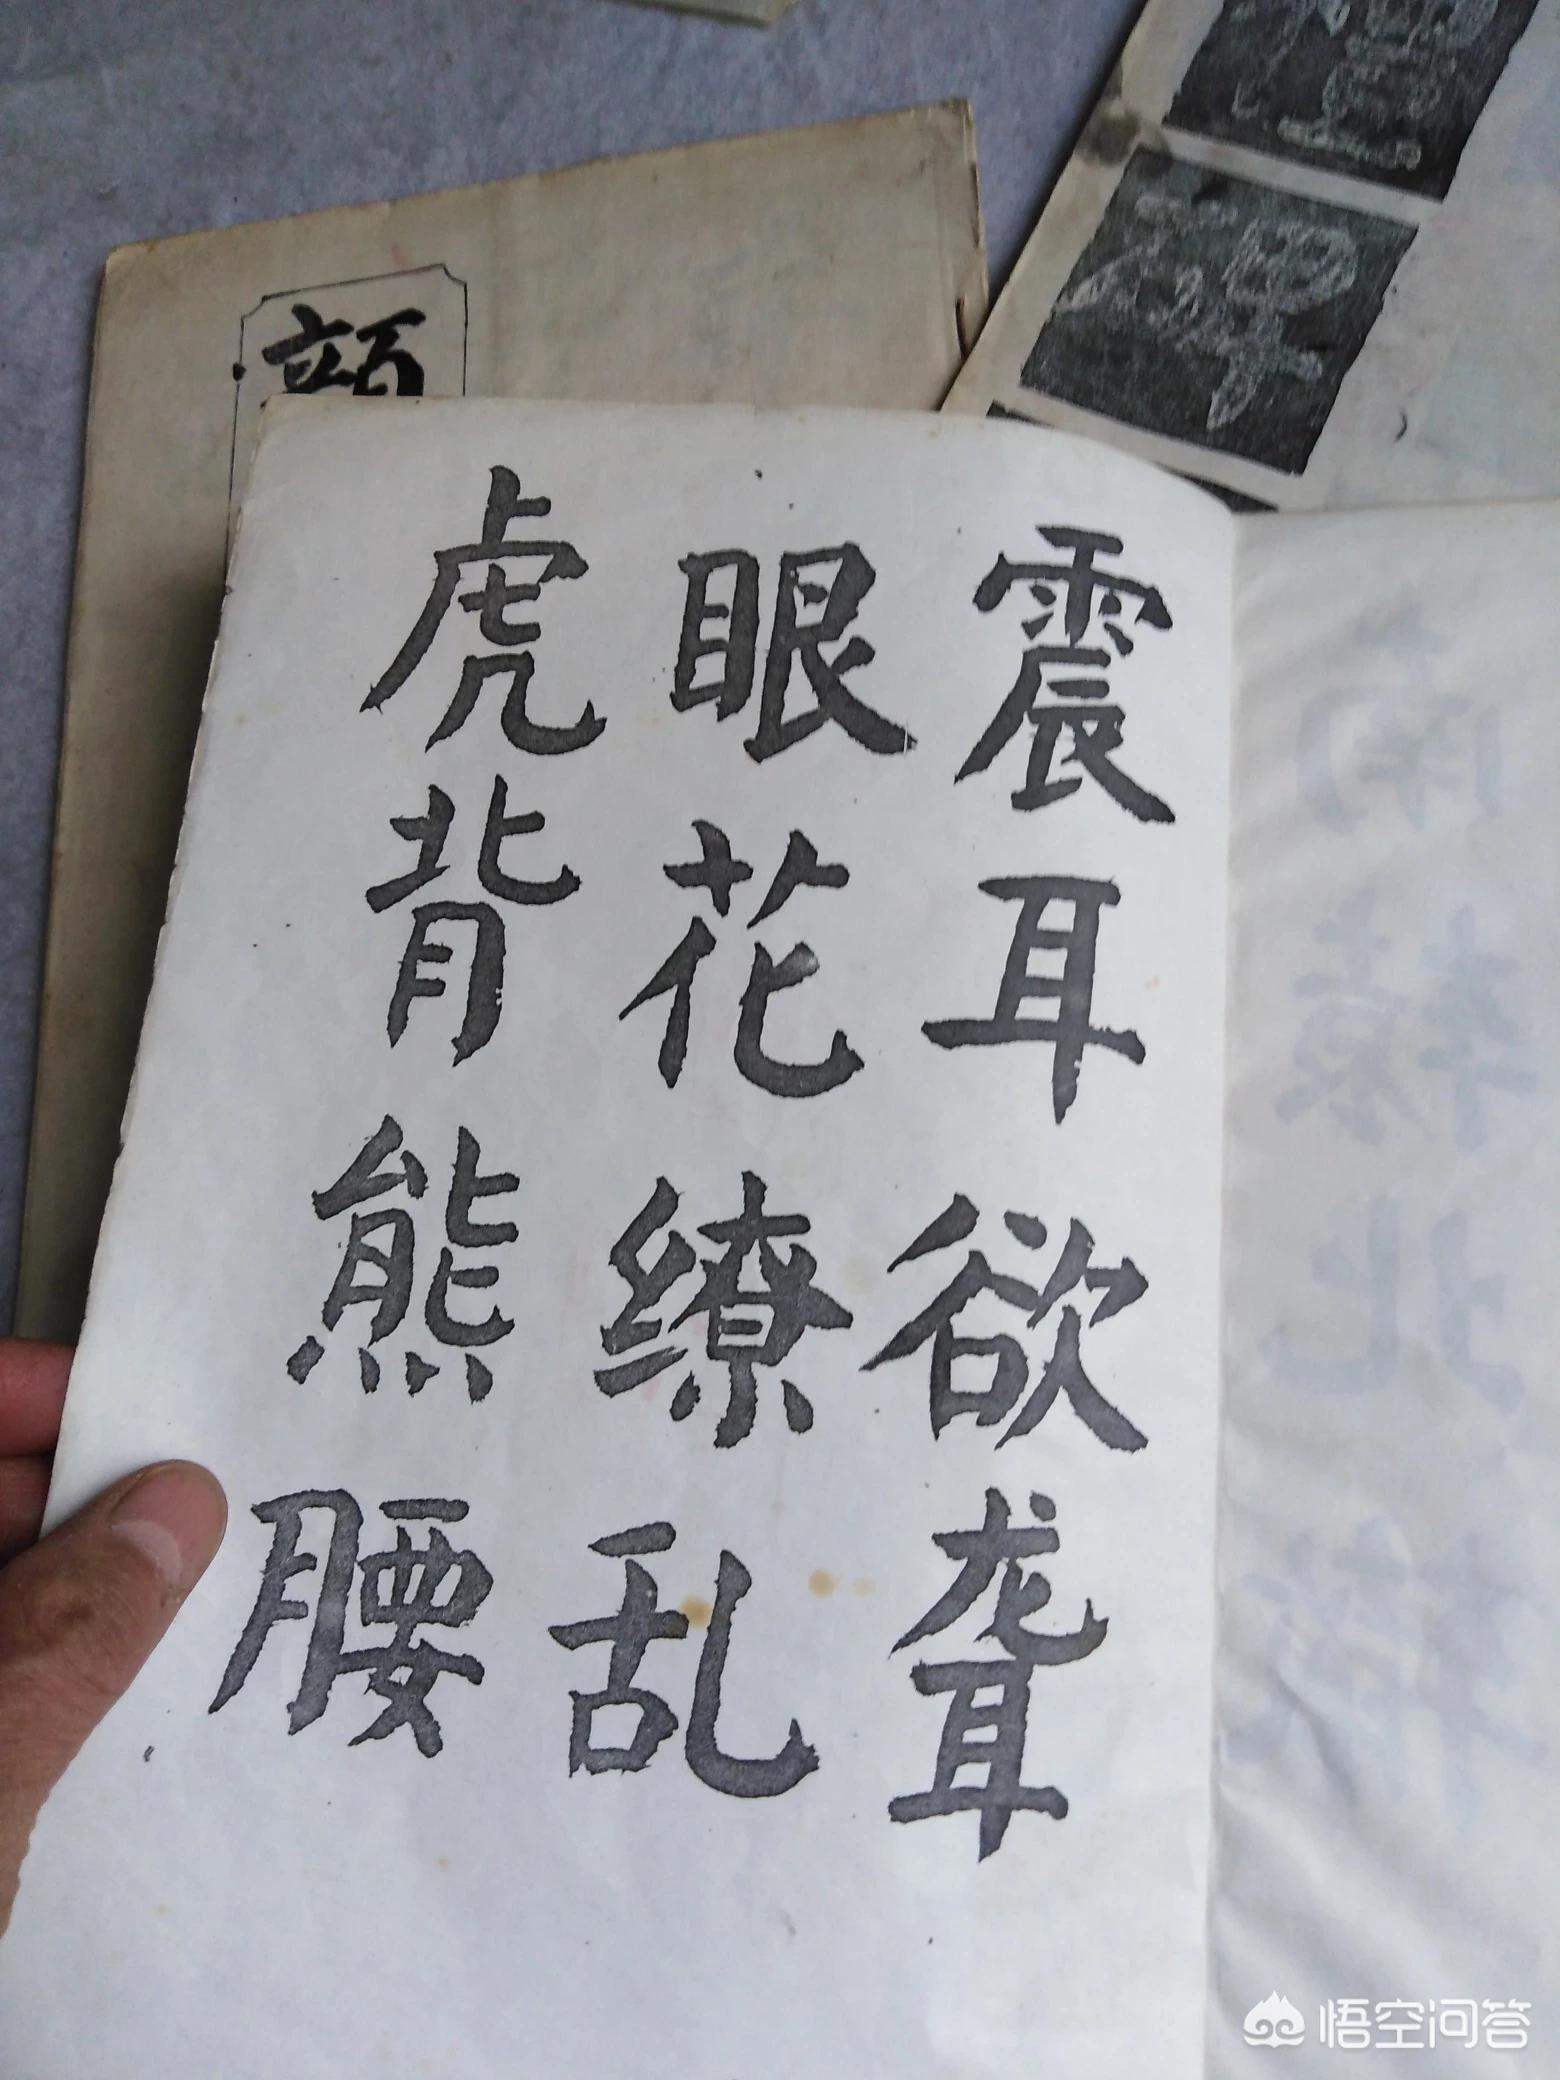 震耳欲聋
眼花缭乱
虎背熊腰
颜
碑
悟空问答